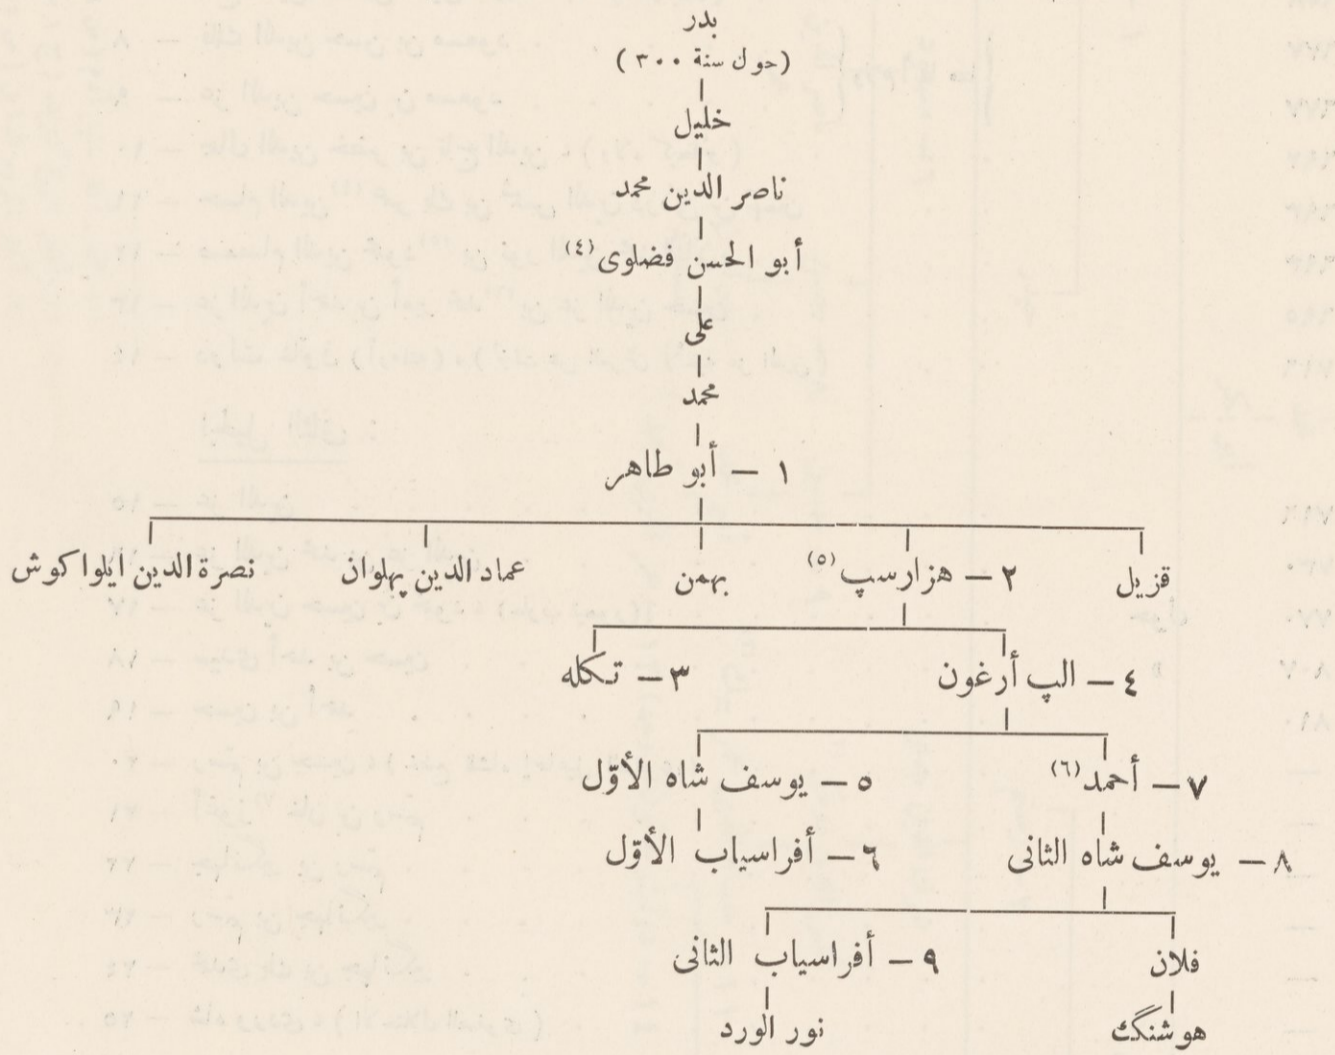 بدر
(حول سنة ٣٠٠)
خليل
ناصر الدين محمد
أبو الحسن فضلوى (٤)
على
محمد
١ — أبو طاهر
قزيل ٢ — هزارسپ (٥) بهمن عماد الدين پهلوان نصرة الدين ايلواكوش
٤ — الپ أرغون ٣ — تكله
٧ — أحمد (٦) ٥ — يوسف شاه الأوّل
٨ — يوسف شاه الثانى ٦ — أفراسياب الأوّل
فلان ٩ — أفراسياب الثانى
هوشنگ نور الورد